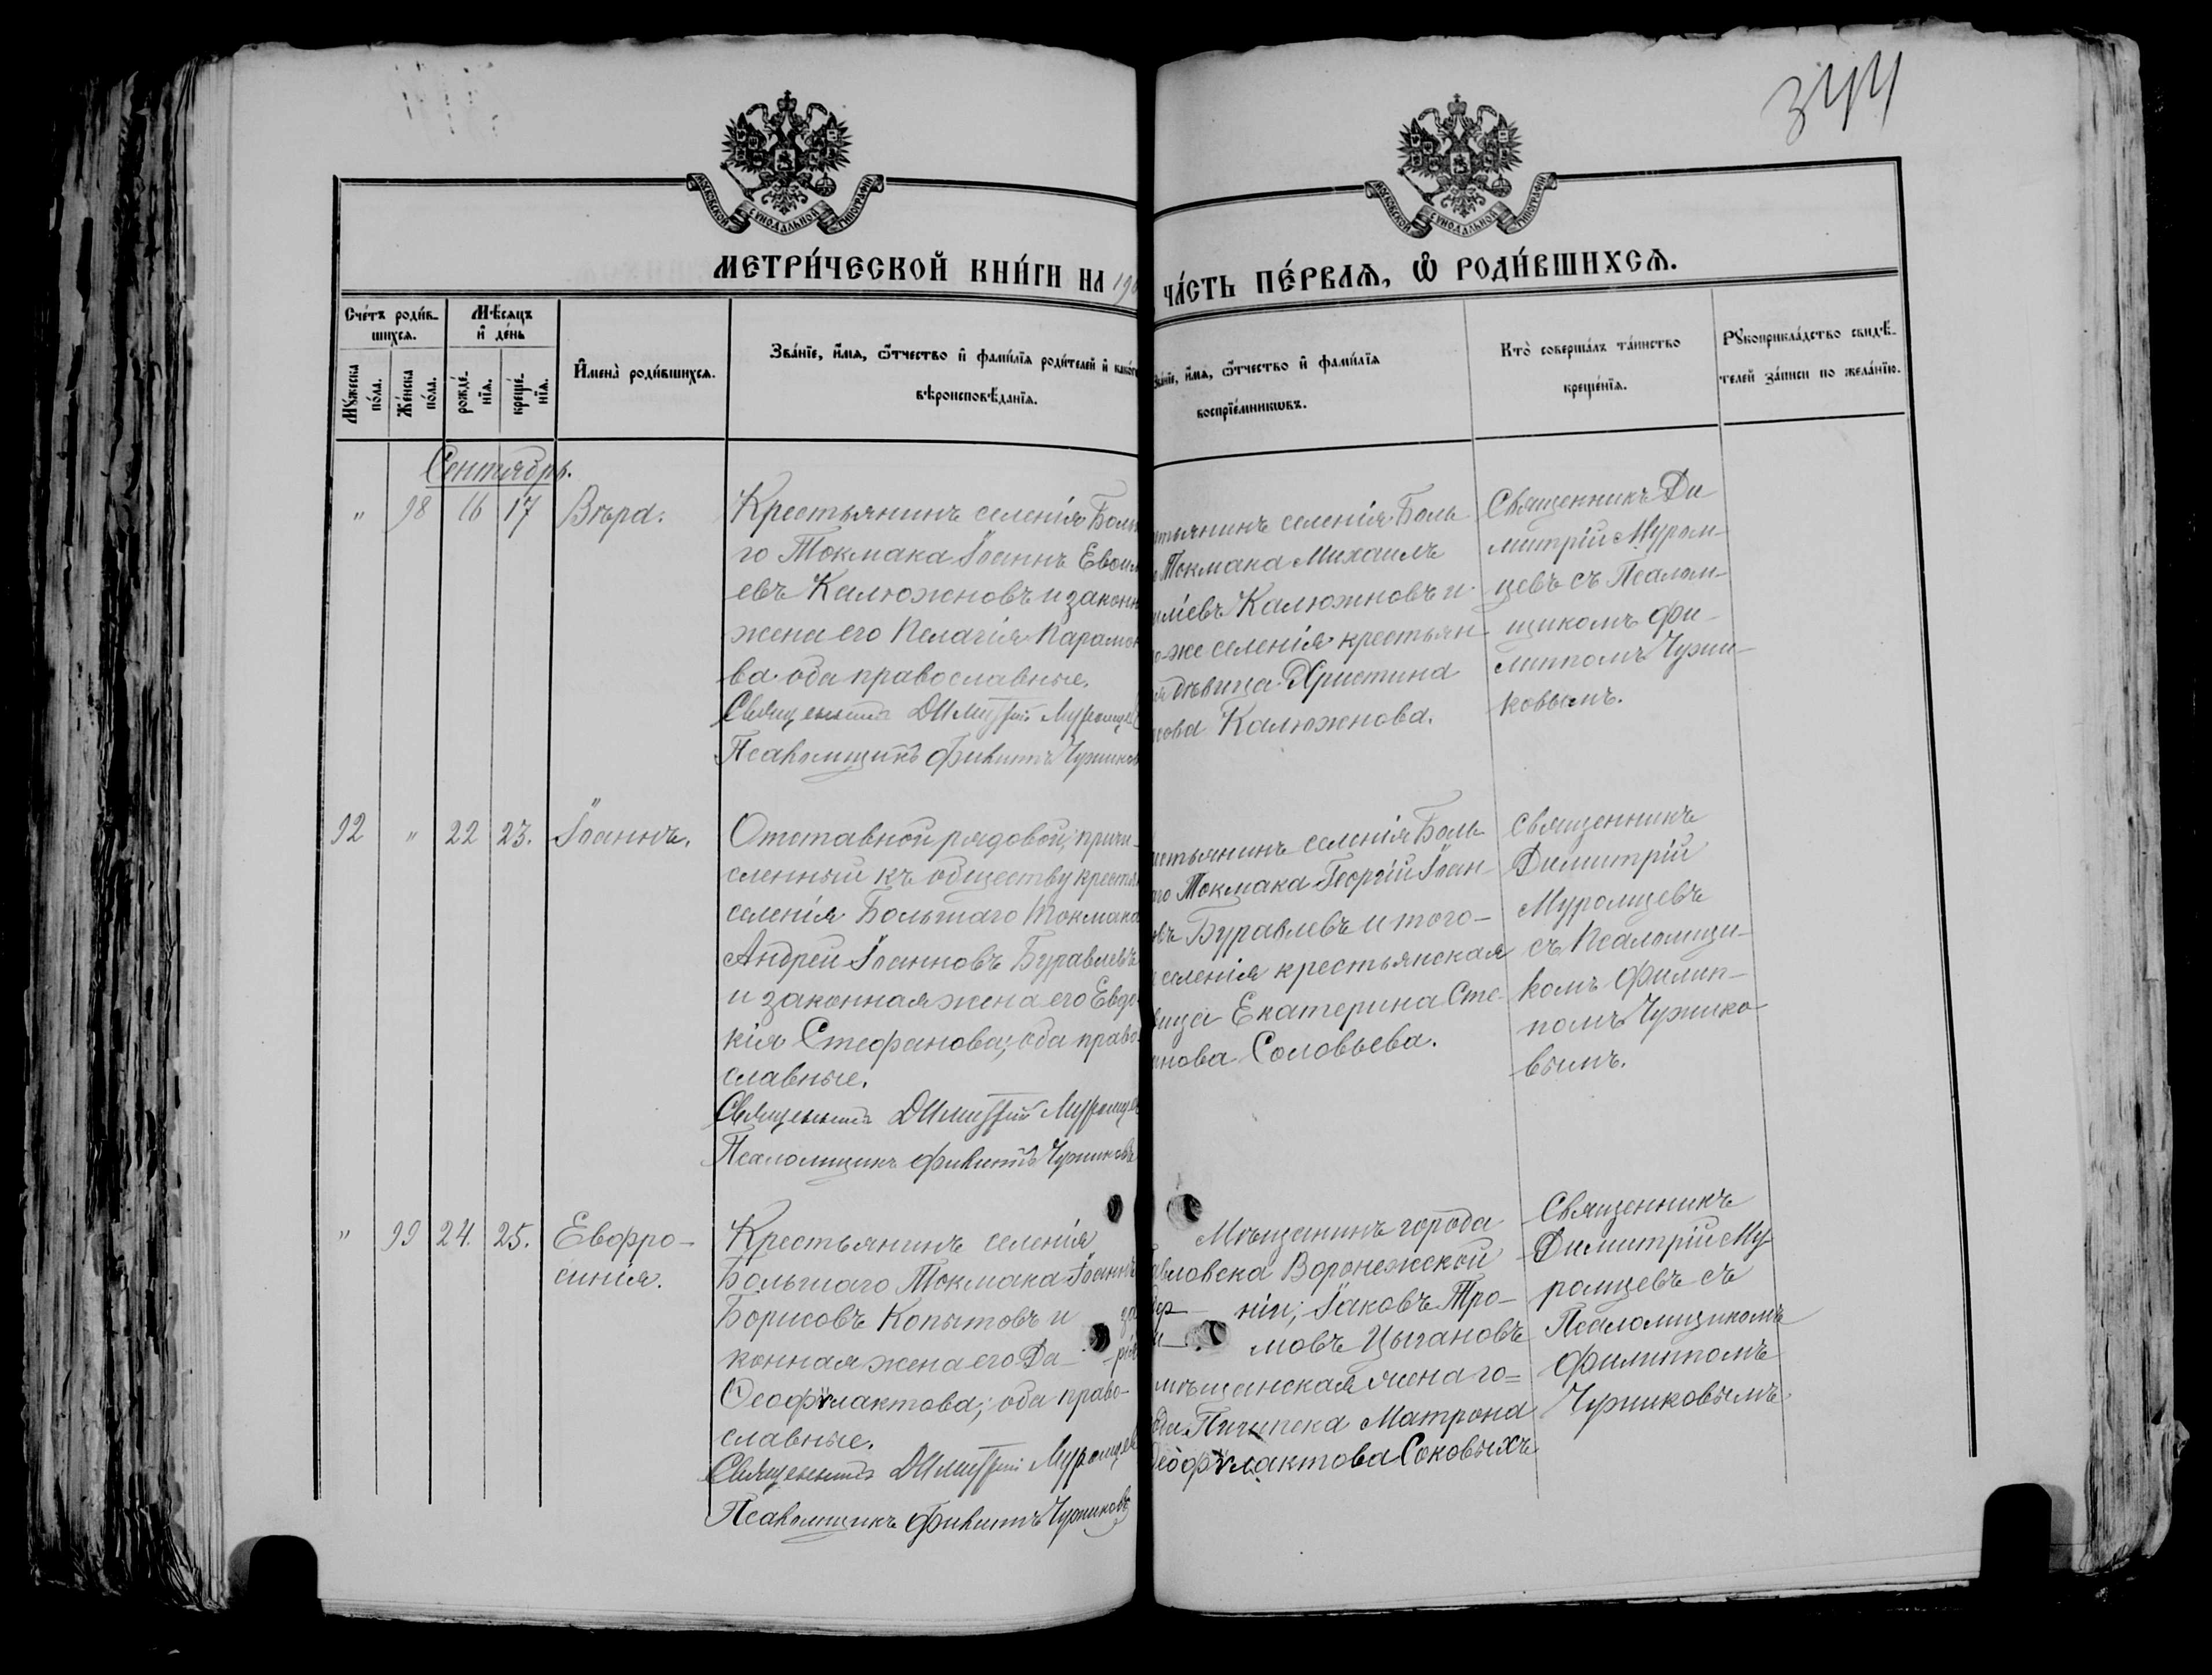 344
МОСКОВСКОЙ СУНОДАЛЬНОЙ ТИПОГРАФІИ
МОСКОВСКОЙ СУНОДАЛЬНОЙ ТИПОГРАФІИ
МЕТРИ́ЧЕСКОЙ КНИ́ГИ НА 190
ЧА́СТЬ ПЕ́РВАѦ, Ѽ РОДИ́ВШИХСѦ.
Сче́тъ роди́в-
шихсѧ.
Мѣ́сѧцъ
и҆ де́нь
Мꙋ́жеска
по́ла.
Же́нска
по́ла.
рожде́-
нїѧ.
креще́-
нїѧ.
И҆мена̀ роди́вшихсѧ.
Зва́нїе, и҆́мѧ, ѻ҆́тчество и҆ фами́лїѧ роди́телей и҆ како́гѡ
вѣроисповѣ́данїѧ.
Зва́нїе, и҆́мѧ, ѻ҆́тчество и҆ фами́лїѧ
воспрїе́мникѡвъ.
Кто̀ соверша́лъ та́инство
креще́нїѧ.
Рꙋкоприкла́дство свидѣ́-
телей за́писи по жела́нїю.
Сентябрь.
" 98 16 17 Вѣра.
Крестьянинъ селенія Боль
го Токмака Іоаннъ
евъ Калюжновъ и законн
жена его Пелагія Парамон
ва оба православные.
Священникъ Димитрій Муромцев
Псаломщикъ Филиппъ Чужиков
тьянинъ селенія Боль
Токмака Михаилъ
иліевъ Калюжновъ и
же селенія крестьян
дѣвица Христина
нова Калюжнова.
Священникъ Ди
митрій Муром-
цевъ съ Псалом-
щикомъ Фи-
липпомъ Чужи-
ковымъ.
92 " 22 23. Іоаннъ.
Отставной рядовой, причи-
сленный къ обществу крестья
селенія Большаго Токмака
Андрей Іоанновъ Буравлевъ
и законная жена его Евдо
кія Стефанова; оба право
славные.
Священникъ Димитрій Муромцев
Псаломщикъ Филиппъ Чужиковъ
стьянинъ селенія Боль
го Токмака Георгій Іоан-
овъ Буравлевъ и того-
селенія крестьянская
вица Екатерина Сте-
анова Соловьева.
Священникъ
Димитрій
Муромцевъ
съ Псаломщи-
комъ Филип-
помъ Чужико-
вымъ.
" 99 24. 25. Евфро-
синія.
Крестьянинъ селенія
Большаго Токмака Іоаннъ
Борисовъ Копытовъ и за
конная жена его Да- рія
Ѳеофѵлактова; оба право-
славные.
Священникъ Димитрій Муромцев
Псаломщикъ Филиппъ Чужиковъ
Мѣщанинъ города
авловска Воронежской
бер- ніи, Іаковъ Тро-
и- мовъ Цыгановъ
мѣщанская жена го=
ода Матрона
Ѳеофѵлактова Соковыхъ
Священникъ
Димитрій Му-
ромцевъ съ
Псаломщикомъ
Филиппомъ
Чужиковымъ.